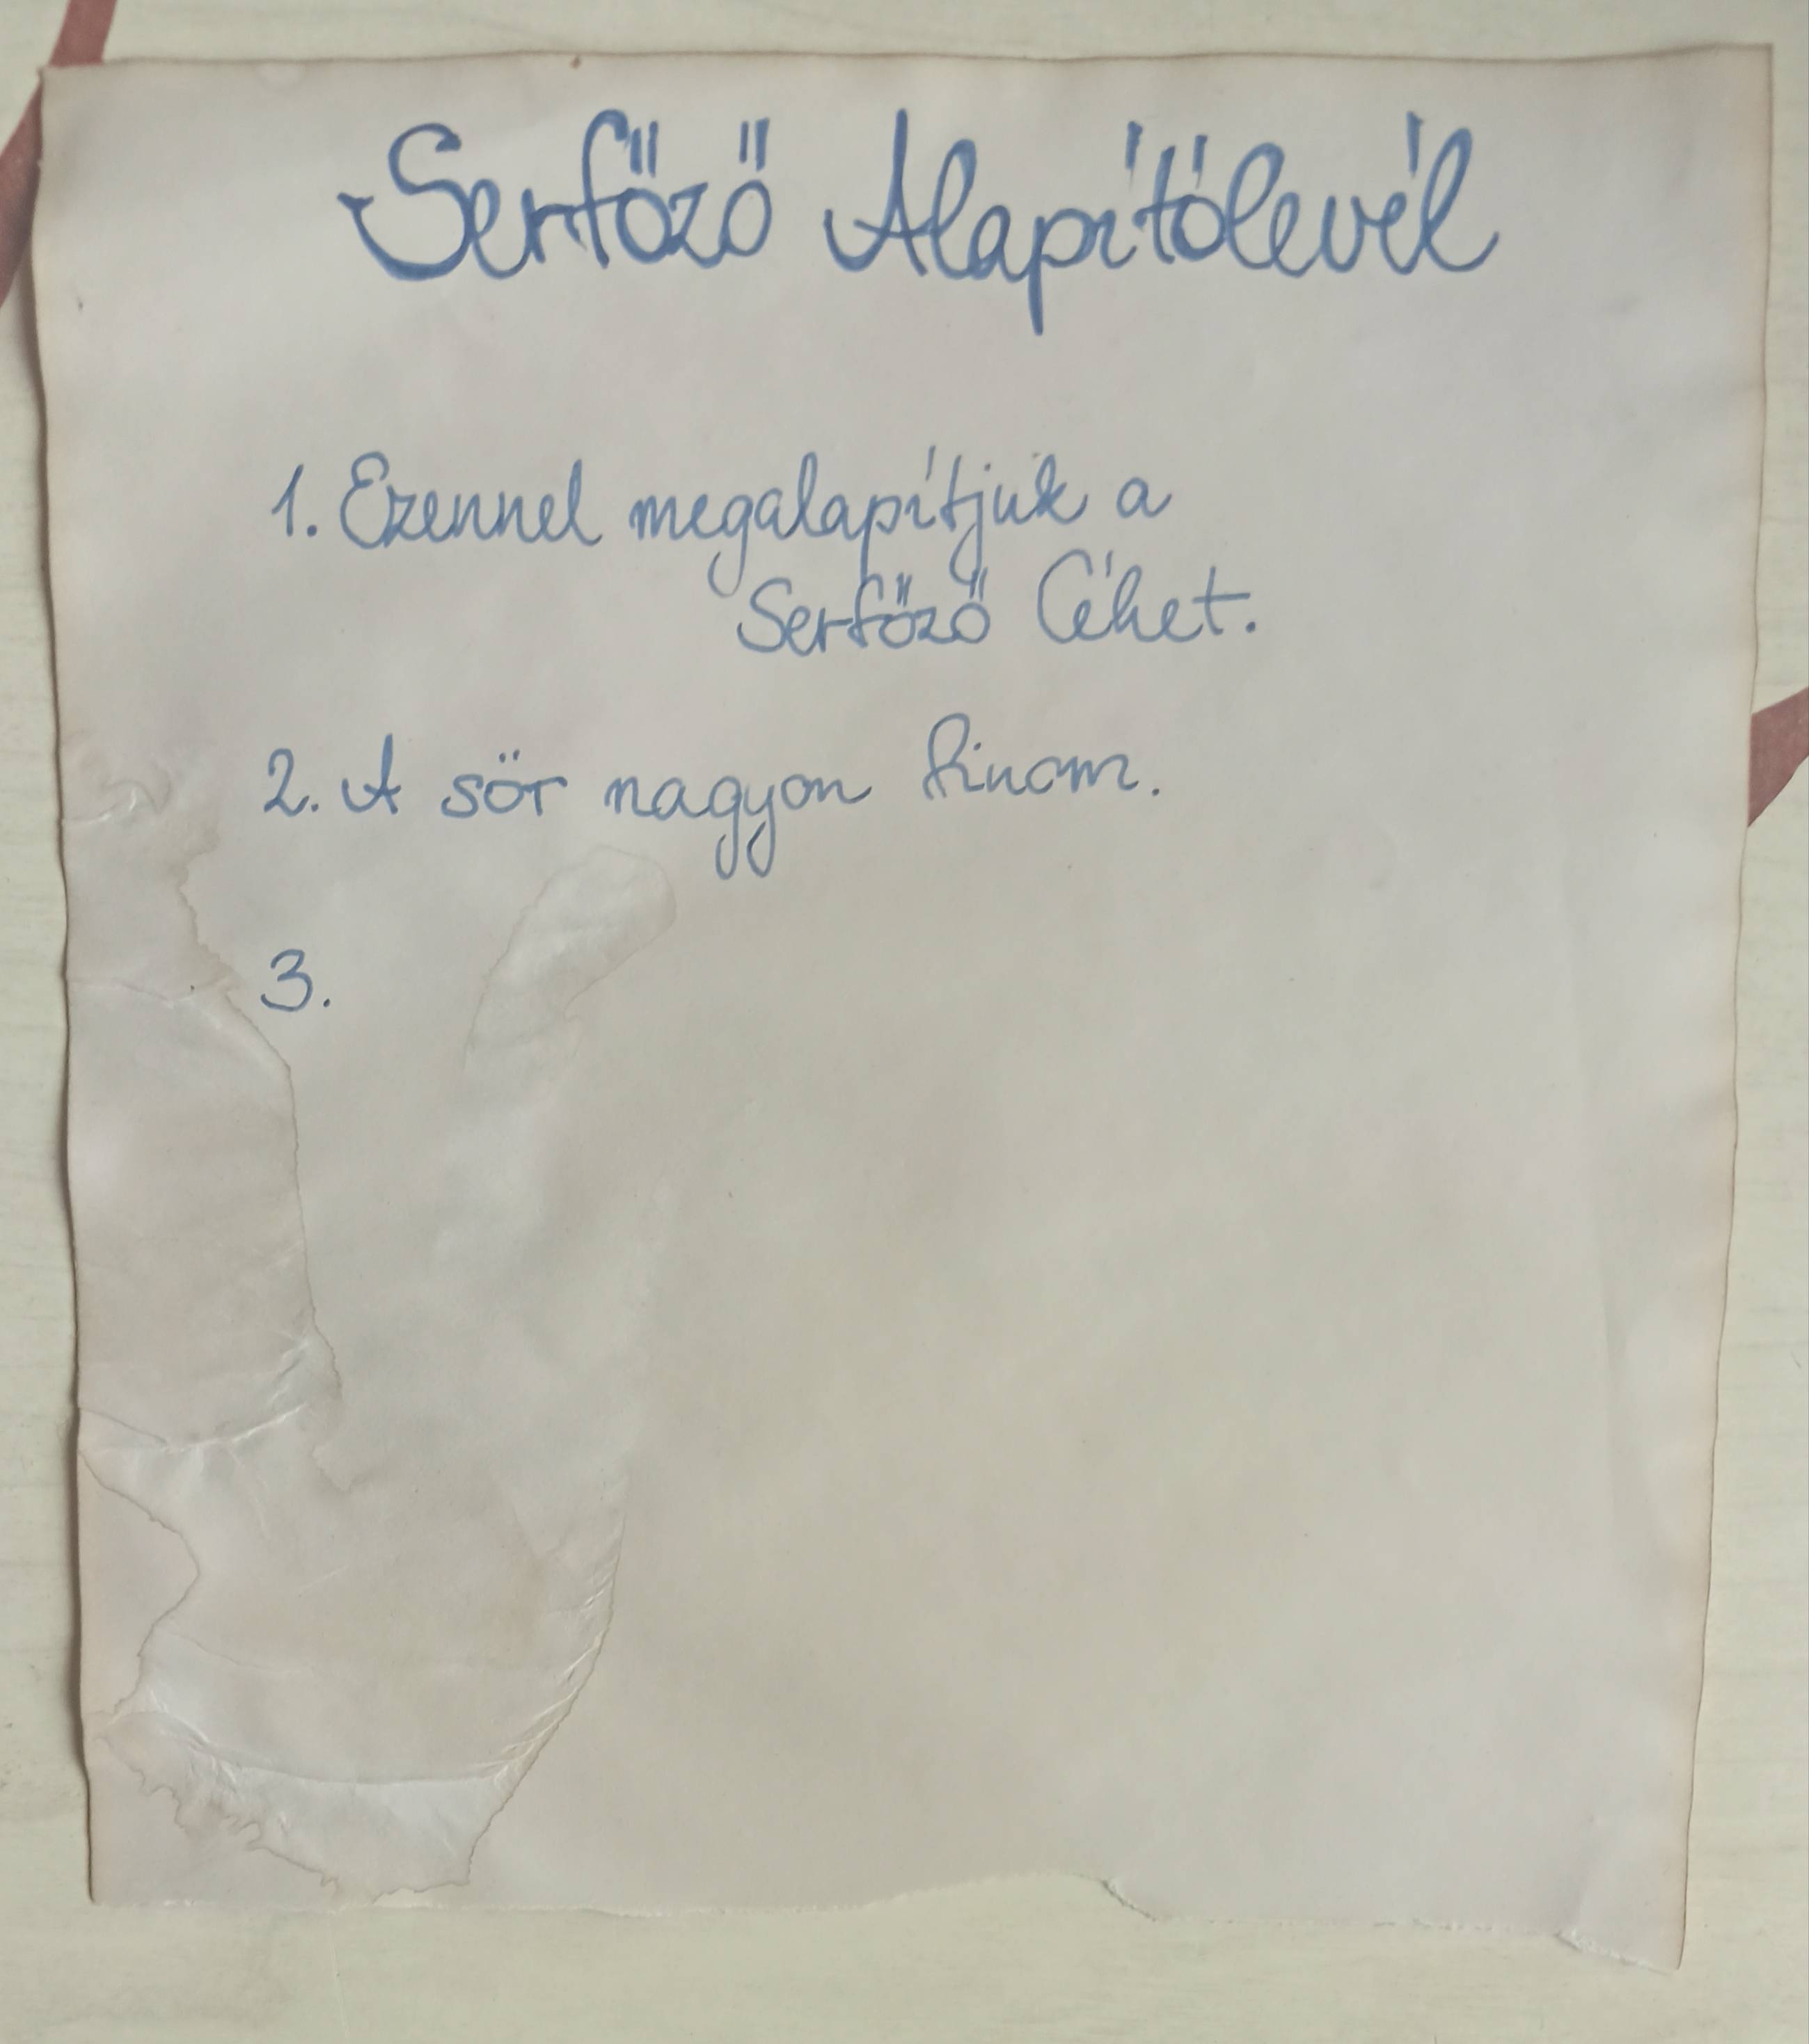 Serfőző Alapítólevél
1. Ezennel megalapítjuk a
Serfőző Céhet.
2. A sör nagyon finom.
3.